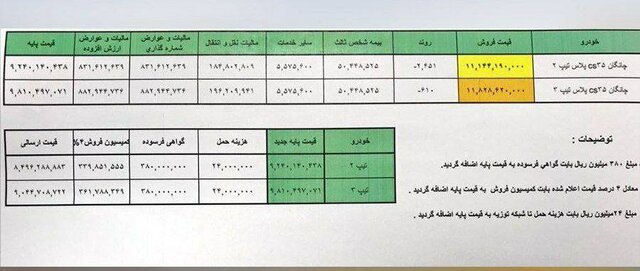 خودرو قیمت فروش روند بیمه شخص ثالث سایر خدمات مالیات نقل و انتقال مالیات و عوارض شماره گذاری مالیات و عوارض ارزش افزوده قیمت پایه
چانگان cs35 پلاس تیپ ۲ ۱۱,۱۴۴,۱۹۰,۰۰۰ -۲,۴۵۱ ۵۰,۴۴۸,۵۲۵ ۵,۵۷۵,۶۰۰ ۱۸۴,۸۰۲,۸۰۹ ۸۳۱,۶۱۲,۶۳۹ ۸۳۱,۶۱۲,۶۳۹ ۹,۲۴۰,۱۴۰,۴۳۸
چانگان cs35 پلاس تیپ ۳ ۱۱,۸۲۸,۶۲۰,۰۰۰ -۶۱۰ ۵۰,۴۴۸,۵۲۵ ۵,۵۷۵,۶۰۰ ۱۹۶,۲۰۹,۹۴۱ ۸۸۲,۹۴۴,۷۳۶ ۸۸۲,۹۴۴,۷۳۶ ۹,۸۱۰,۴۹۷,۰۷۱
توضیحات :
خودرو قیمت پایه جدید هزینه حمل گواهی فرسوده کمیسیون فروش۴% قیمت ارسالی
تیپ ۲ ۹,۲۴۰,۱۴۰,۴۳۸ ۲۴,۰۰۰,۰۰۰ ۳۸۰,۰۰۰,۰۰۰ ۳۳۹,۸۵۱,۵۵۵ ۸,۴۹۶,۲۸۸,۸۸۳
تیپ ۳ ۹,۸۱۰,۴۹۷,۰۷۱ ۲۴,۰۰۰,۰۰۰ ۳۸۰,۰۰۰,۰۰۰ ۳۶۱,۷۸۸,۳۴۹ ۹,۰۴۴,۷۰۸,۷۲۲
مبلغ ۳۸۰ میلیون ریال بابت گواهی فرسوده به قیمت پایه اضافه گردید.
معادل ۴ درصد قیمت اعلام شده بابت کمیسیون فروش به قیمت پایه اضافه گردید .
مبلغ ۲۴میلیون ریال بابت هزینه حمل تا شبکه توزیه به قیمت پایه اضافه گردید .